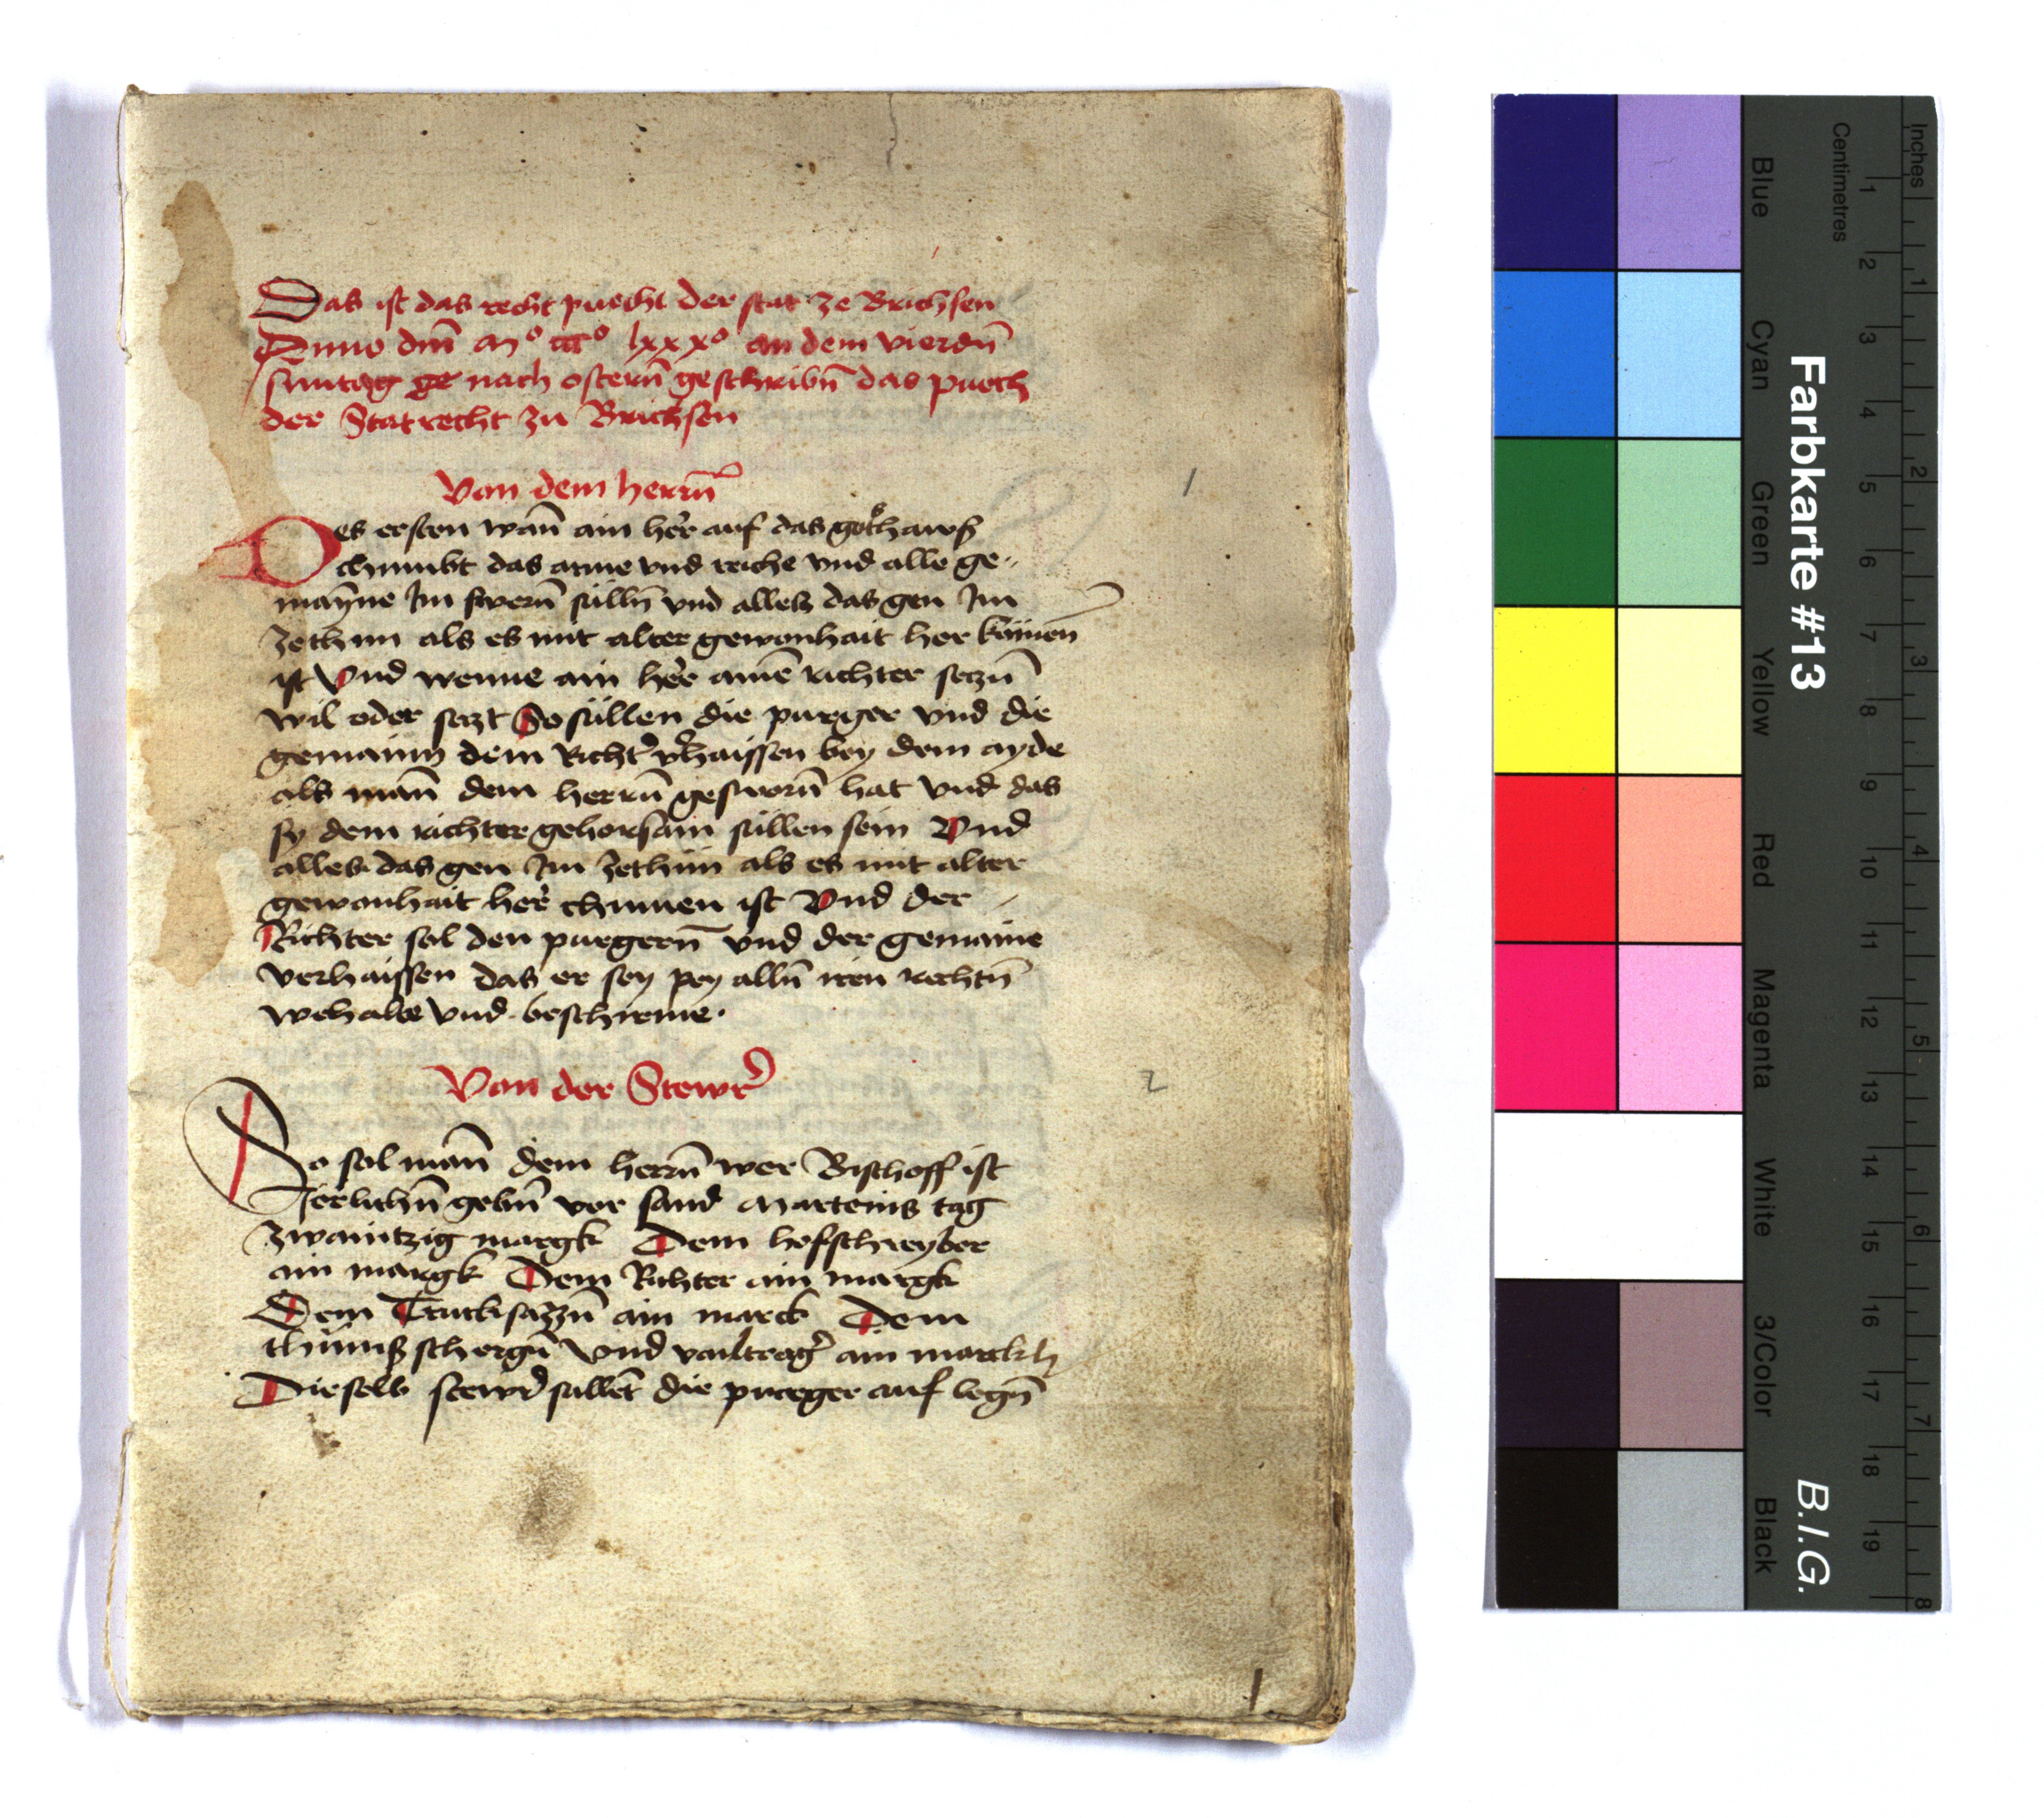 Das ist das recht puecht der stat ze Brichsen
Anno dm̄ Mº cccº lxxxº an dem vierdn̄
suntag ge nach ostern̄ geschribn̄ das puech
der Stat recht zu Brichsen
Von dem herrn̄
Des ersten wan̄ ain her auf das gotshaws
chumbt das arme vnd reiche vnd alle ge-
mayne Im swern̄ sülln̄ vnd alles das gen Im
zethun als es mit alter gewonhait her kömen
ist Vnd wenne ain her ainē richter seczn̄
wil oder seczt So süllen die purger vnd die
gemainn dem Richt' v'haissen bey dem ayde
als man̄ dem herrn̄ gesworn̄ hat vnd das
sy dem richter gehorsam süllen sein Vnd
alles das gen Im zethun als es mit alter
gewonhait her chumen ist Vnd der
Richter sol den purgern̄ vnd der gemaine
verhaissen das er sey pey alln̄ iren rechtn̄
wehalte vnd beschirme.
Von der Stewr
So sol man̄ dem herrn̄ wer Bischoff ist
Jerlichn̄ gebn̄ vor sand Marteins tag
zwaintzig margk Dem hofschreyber
ain margk Dem Richter ain margk
Dem Trucksazzn̄ ain marck Dem
schergn̄ Vnd ain marckh
Dieselb stewr süllēt die purger auf legn̄
1
2
1
Farbkarte #13
B.I.G.
Inches
Centimetres
Blue
Cyan
Green
Yellow
Red
Magenta
White
3/Color
Black
1 2 3 4 5 6 7 8 9 10 11 12 13 14 15 16 17 18 19
1 2 3 4 5 6 7 8